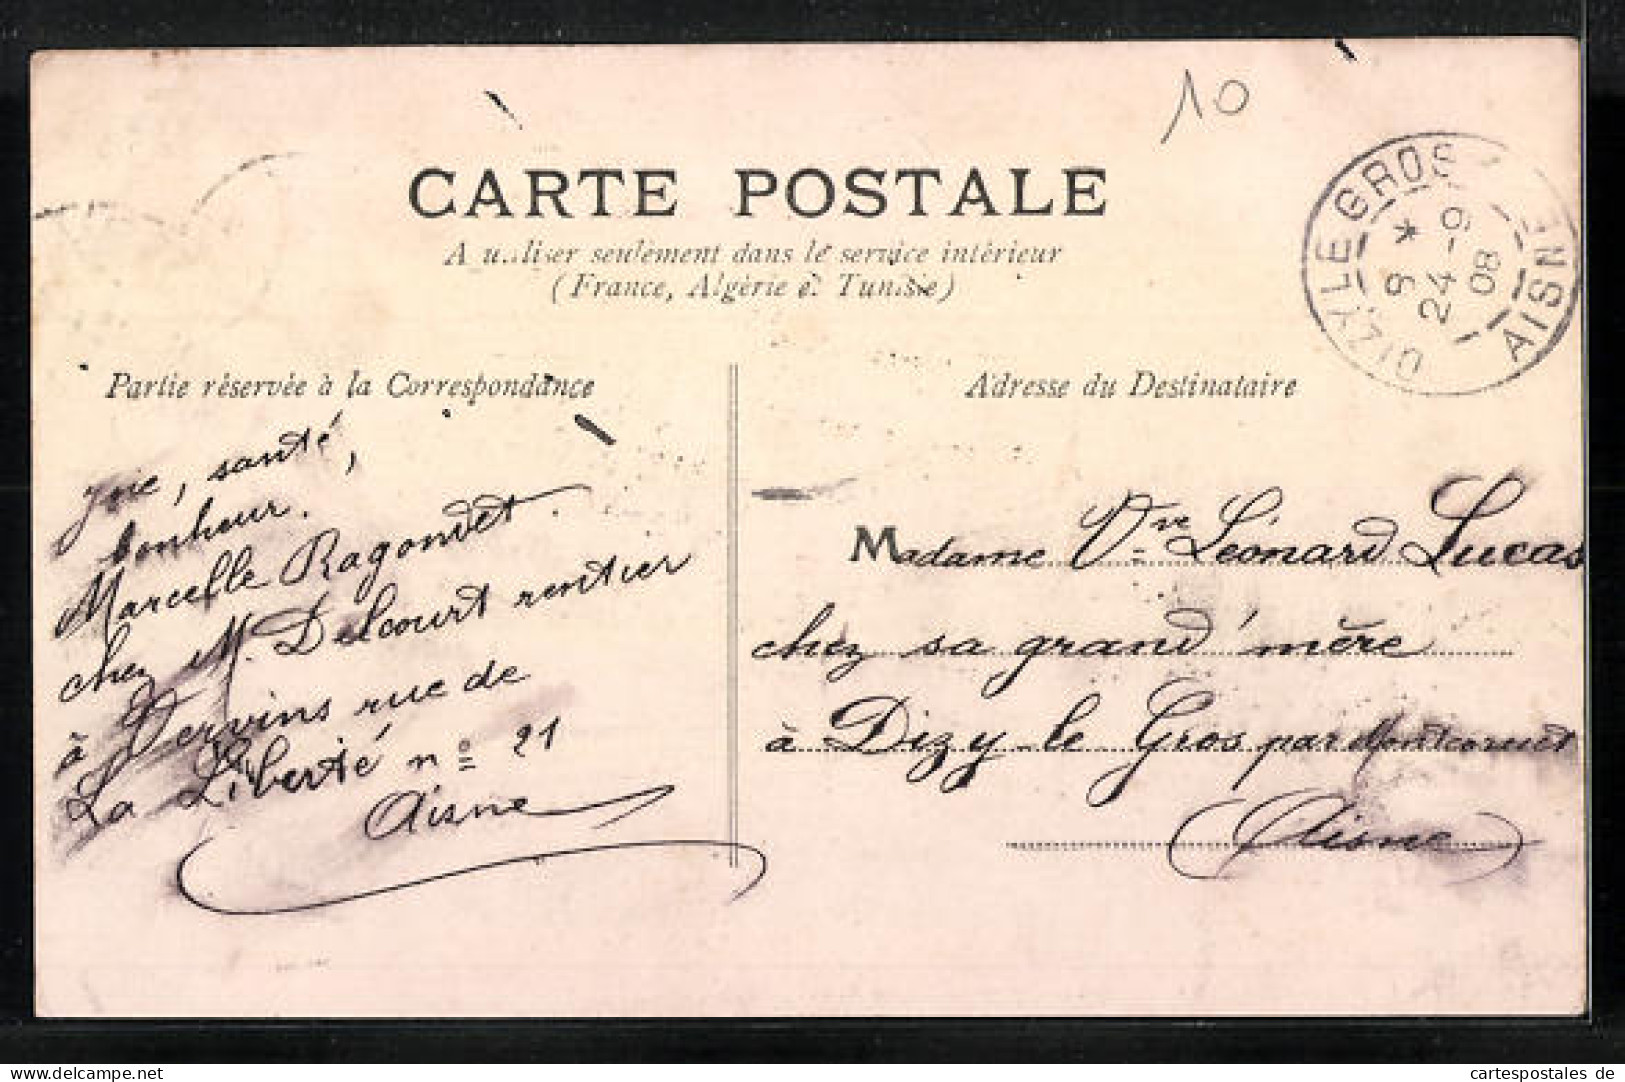 10
CARTE POSTALE
A utiliser seulement dans le service intérieur
(France, Algérie et Tunisie)
DIZY LE GROS
9 *
24 - 9
08
AISNE
Partie réservée à la Correspondance
Joie, santé,
bonheur.
Marcelle Ragondet.
chez M. Delcourt rentier
à Vervins rue de
La Liberté nº 21
Aisne
Adresse du Destinataire
Madame Vve Léonard Lucas
chez sa grand'mère
à Dizy-le Gros par Montcornet
(Aisne)
www.cartespostales.de/karten.html
cartespostales de